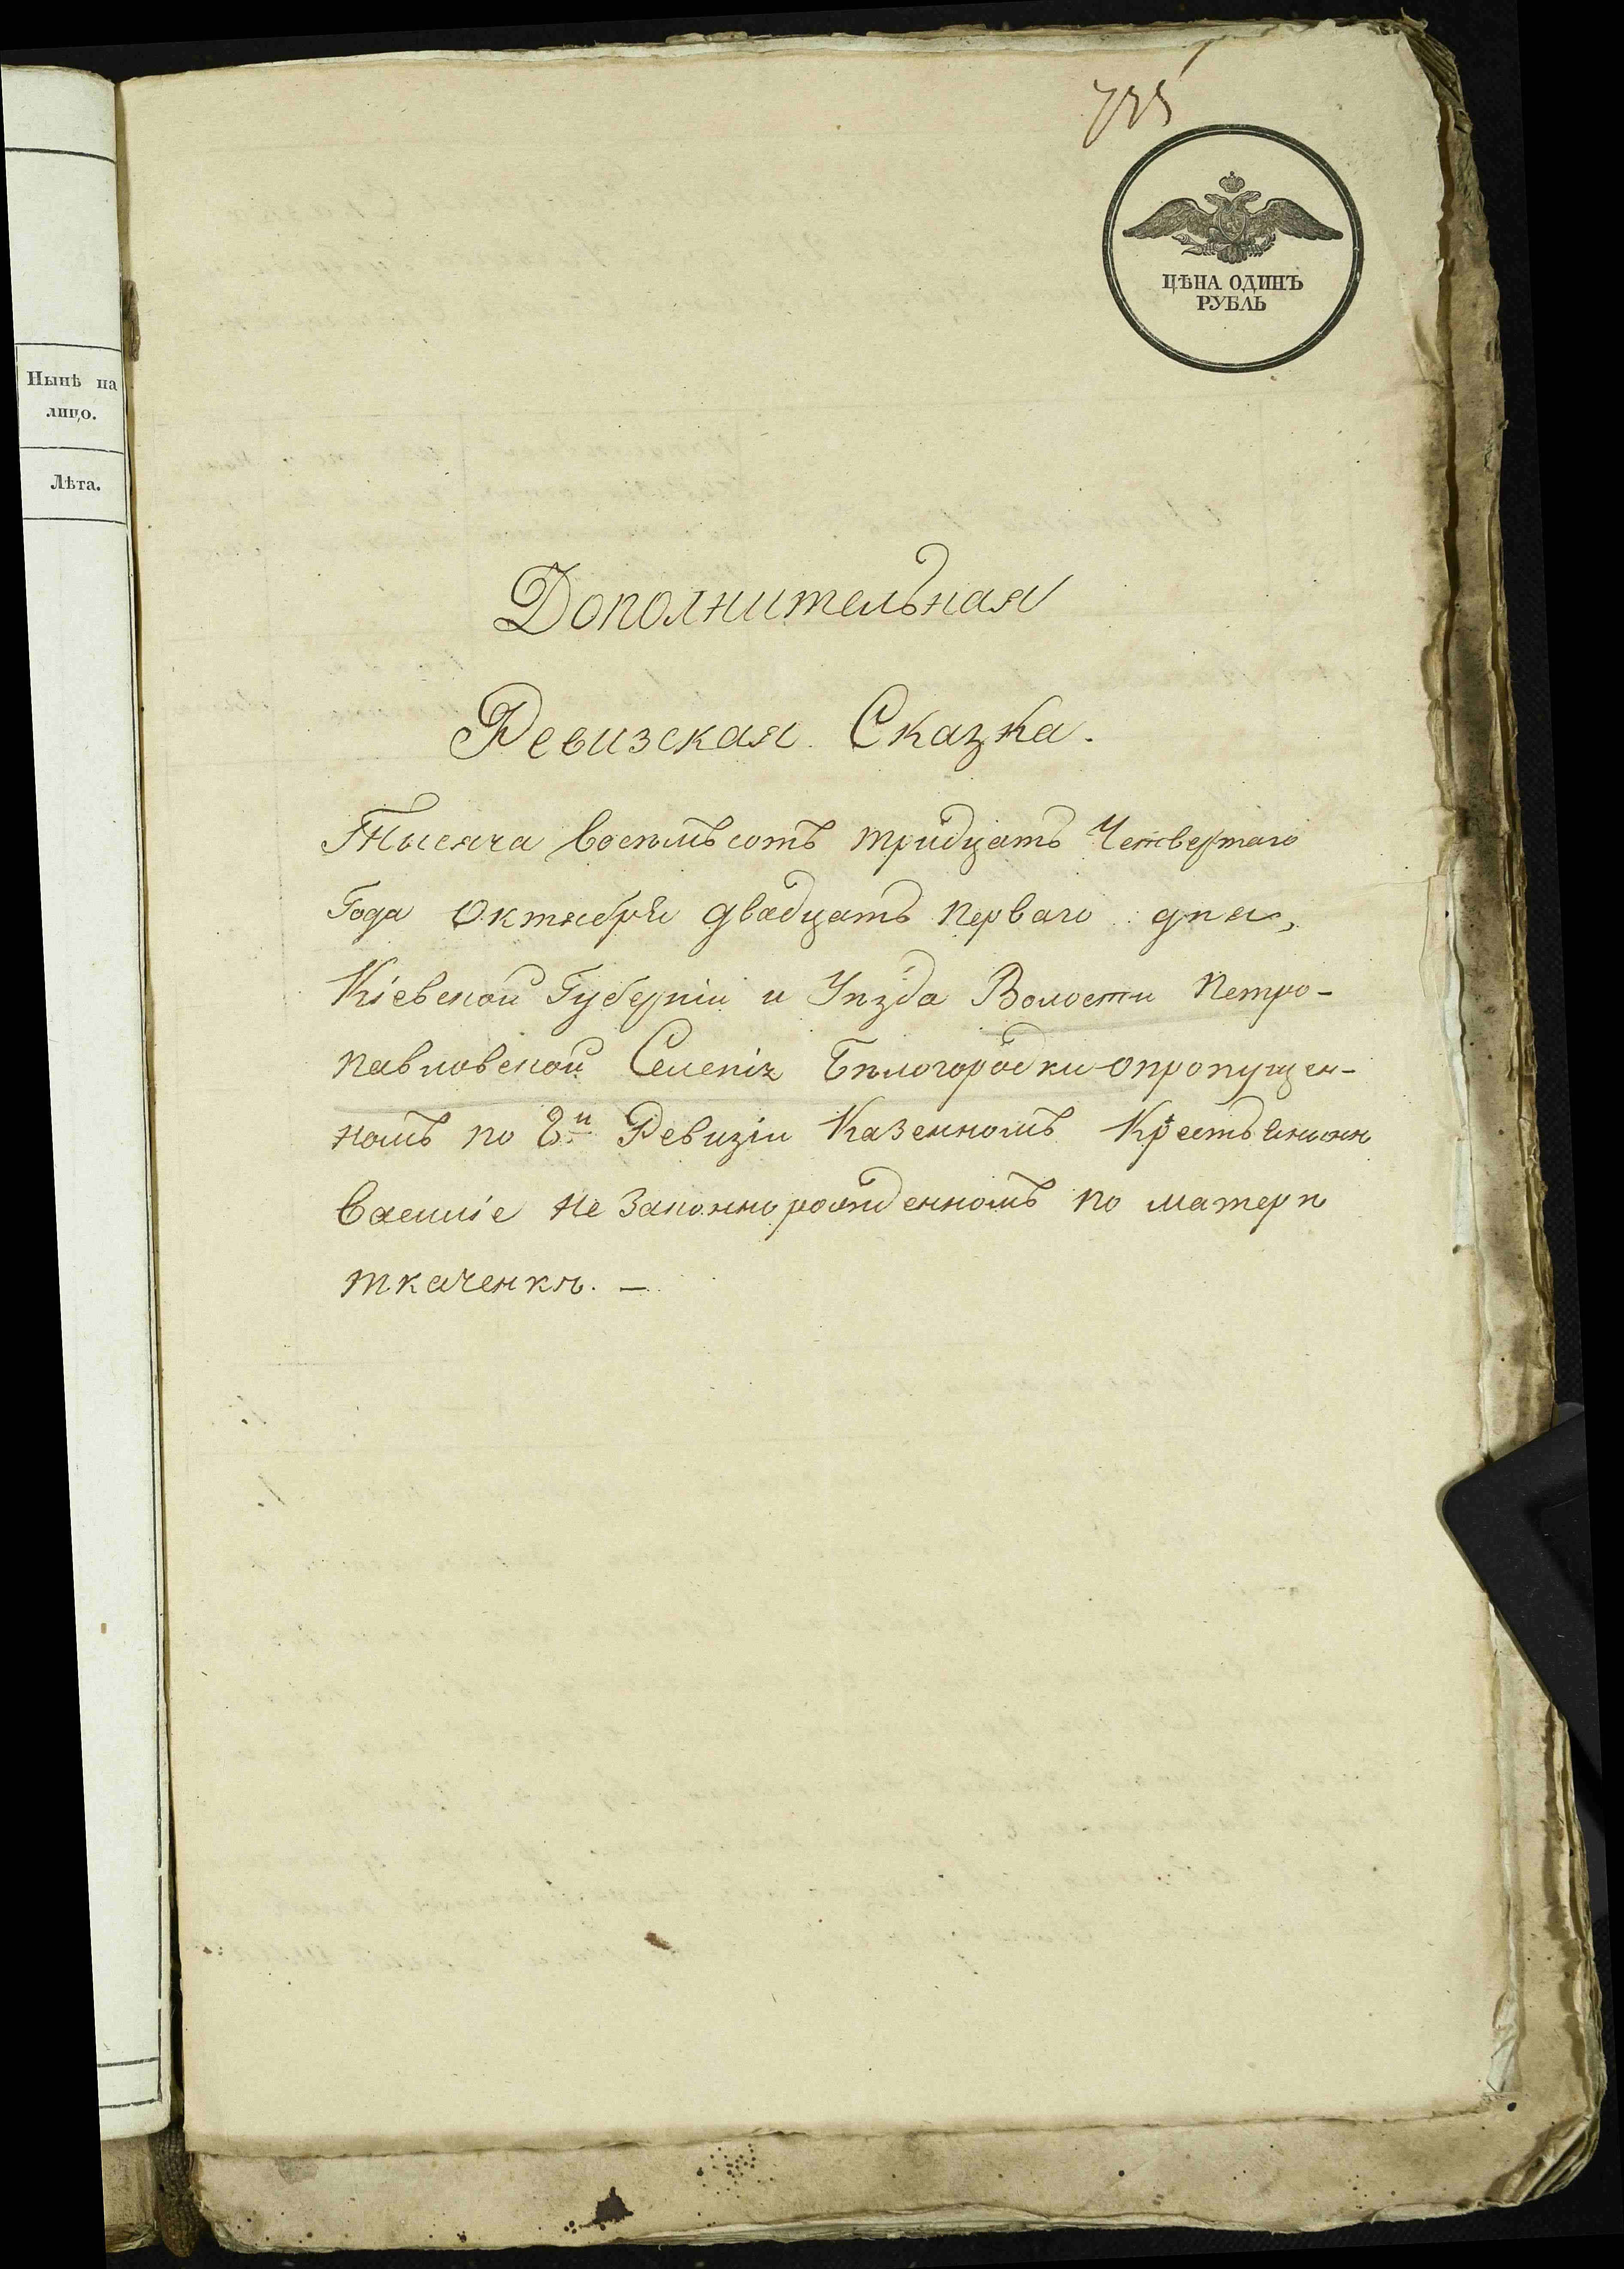 735
ЦѢНА ОДИНЪ
РУБЛЬ
Нынѣ на
лицо.
Лѣта.
Дополнительная
Ревизская Сказка.
Тысяча восемьсотъ тридцать Четвертаго
Года Октября двадцать перваго дня,
Кіевской Губерніи и Уѣзда Волости Петро-
павловской Селенія Бѣлогородки о пропущен-
номъ по 8й Ревизіи Казенномъ Крестьянинѣ
Василіе не Законнорожденномъ по матери
ткаченкѣ. —